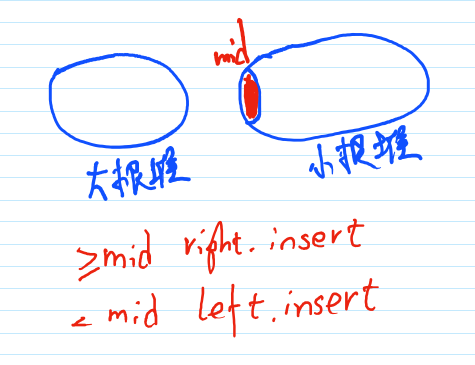 mid
大根堆
小根堆
≥mid right.insert
< mid left.insert